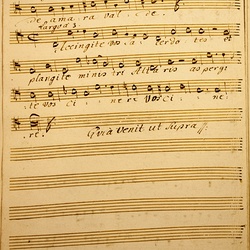 De amara val ve.
Largo
Accingite vos sacerdotes et
plangite ministri Altaris aspergi
te vos cinere vos ci ne
re. Quia venit ut Supra